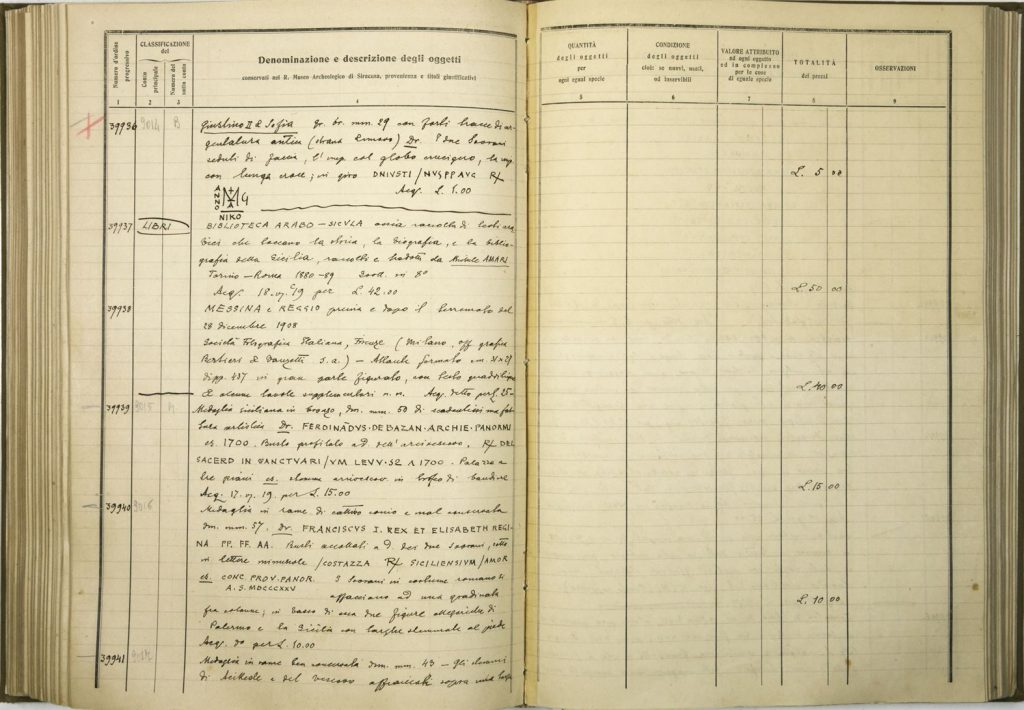 Numero d'ordine progressivo
CLASSIFICAZIONE del
Conto principale
Numero del sotto conto
Denominazione e descrizione degli oggetti
conservati nel R. Museo Archeologico di Siracusa, provenienza e titoli giustificativi
1 2 3 4
39936 9014 B Giustino II e Sofia Dr. br. mm. 29 con forti tracce di ar-
gentatura antica Dr. I due Sovrani
seduti di faccia, l'imp. col globo crucigero, la imp.
con lunga croce; in giro DNIVSTI/NVSPPAVG R/
ANNO M Acq. L. 5.00
NIKO
39937 LIBRI BIBLIOTECA ARABO-SICULA ossia raccolta di testi ara-
bici che toccano la storia, la biografia, e la biblio-
grafia della Sicilia, raccolti e tradotti da Michele AMARI
Torino - Roma 1880-89 in 8°
Acq. 18. VI. 19 per L. 42.00
39938 MESSINA e REGGIO prima e dopo il terremoto del
28 dicembre 1908
Società Fotografica Italiana, Firenze (Milano, off. grafica
Bertieri e Vanzetti s.a.) - formato cm
di pp. 437 in gran parte figurato, con testo quadrilingue
E alcune tavole supplementari n. n. Acq. detto per L. 25-
39939 9015 Medaglia siciliana in bronzo, dm. mm. 50 di
artistica Dr. FERDINĀDVS·DE BAZAN·ARCHIE·PANORMI
es. 1700. Busto profilato a d. dell'arcivescovo. R/ DEL
SACERD IN SANCTVARI/VM LEVV·S2 A 1700. Palazzo a
tre piani es.
Acq. 17. VI. 19. per L. 15.00
39940 9016 Medaglia in rame di cattivo conio e mal conservata
dm. mm. 57. Dr. FRANCISCVS I. REX ET ELISABETH REGI-
NA PP. FF. AA. Busti accollati a d. dei due Sovrani, sotto
in lettere minuscole /COSTAZZA R/ SICILIENSIVM/AMOR
es. CONC. PROV. PANOR. I Sovrani in costume romano si
A. S. MDCCCXXV affacciano ad una gradinata
fra colonne; in basso di essa due figure allegoriche di
Palermo e la Sicilia con targhe stemmate al piede
Acq. do per L. 10.00
39941 Medaglia in rame ben conservata dm. mm. 43 - gli stemmi
di e del vescovo affiancati sopra una
QUANTITÀ degli oggetti per ogni egual specie
CONDIZIONE degli oggetti cioè: se nuovi, usati, od inservibili
VALORE ATTRIBUITO ad ogni oggetto od in complesso per le cose di eguale specie
TOTALITÀ dei prezzi
OSSERVAZIONI
5 6 7 8 9
L. 5 00
L. 50 00
L. 40 00
L. 15 00
L. 10 00